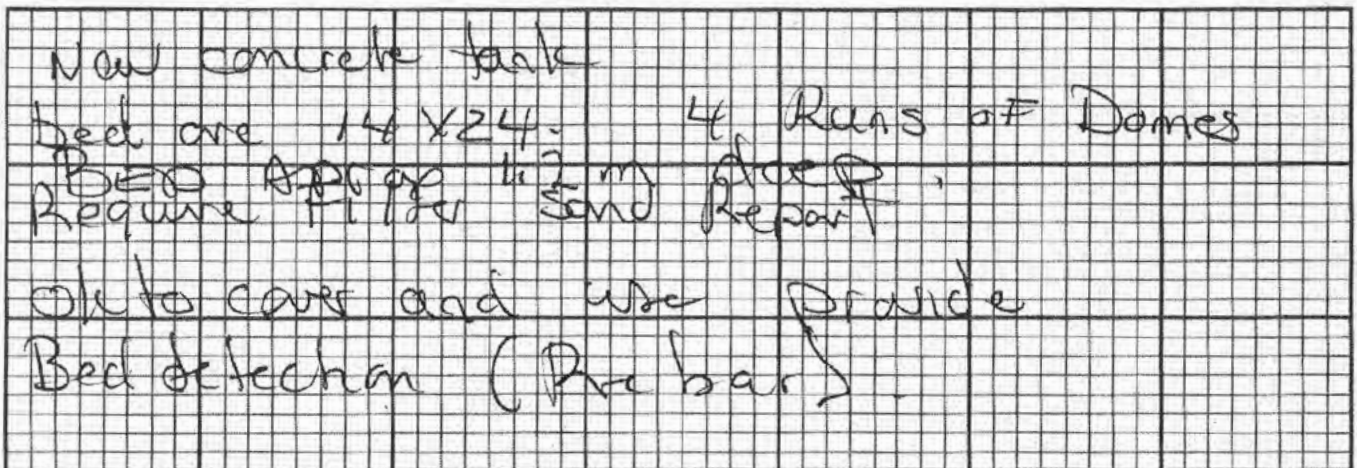 New concrete tank
bed are 14 X 24. 4 Runs of Domes
BED Approx 1.2 m deep.
Require Filter Sand Report
Ok to cover and use provide
Bed detection (Re bar).